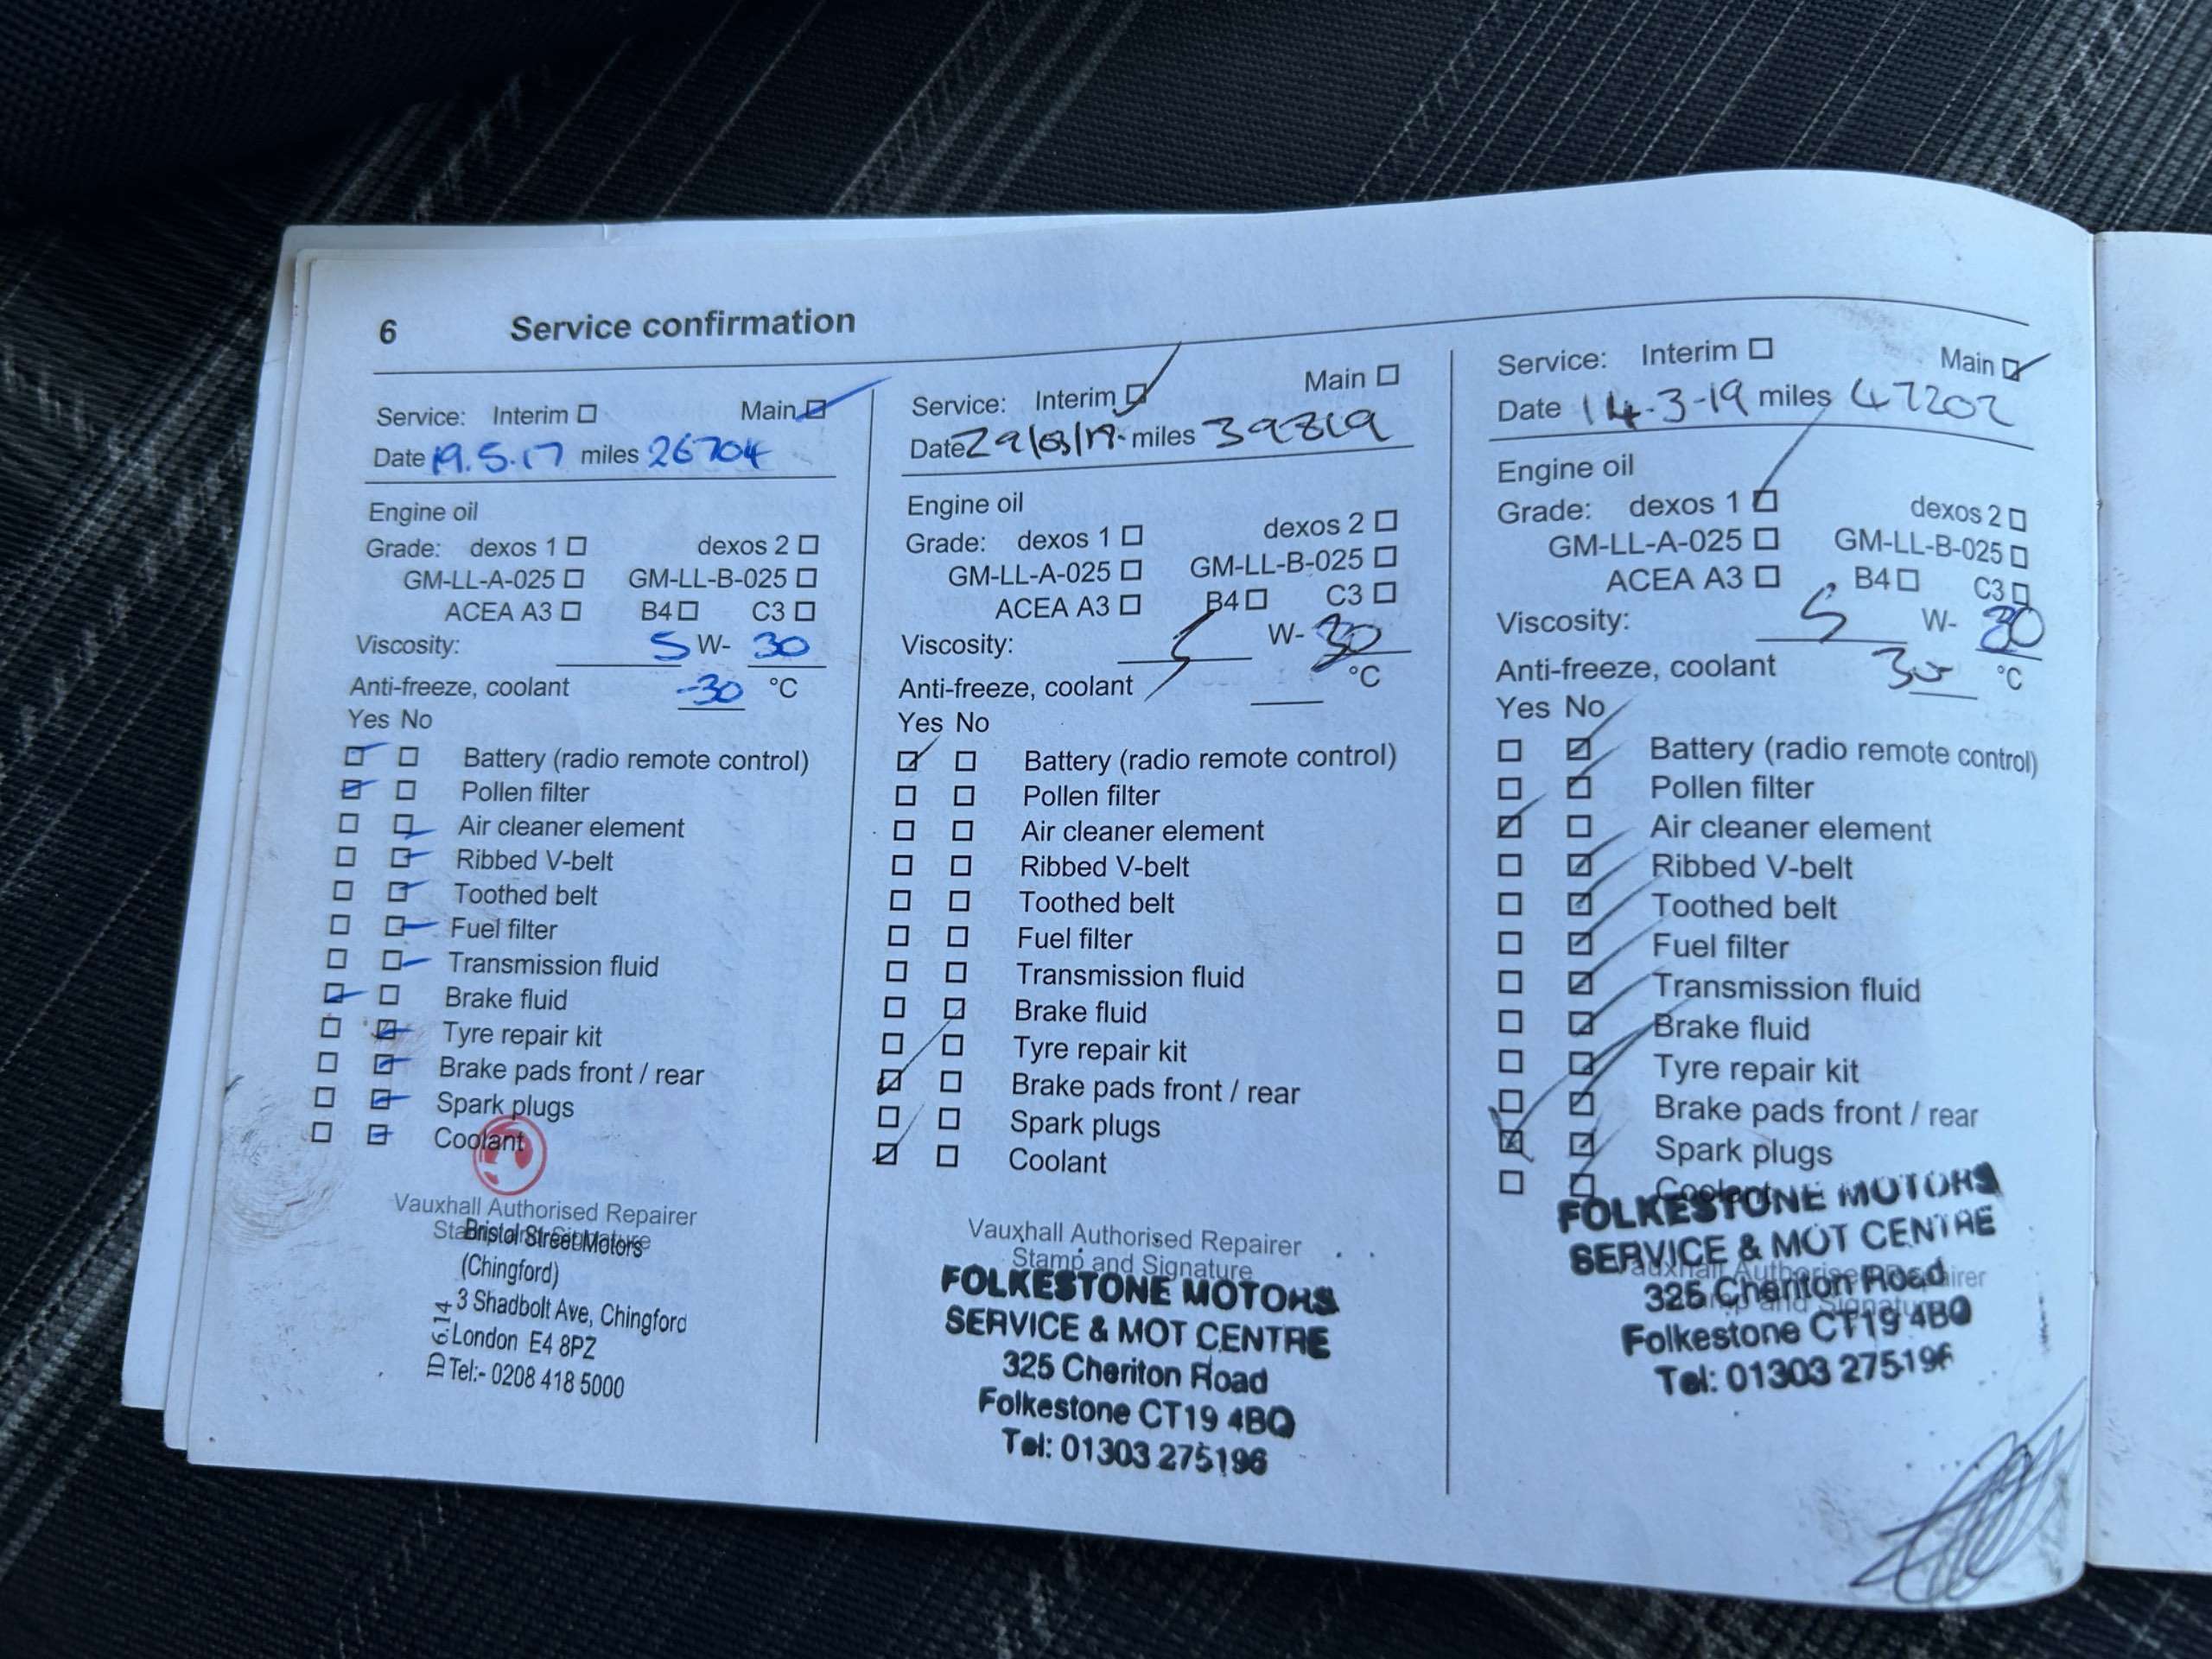 6 Service confirmation
Service: Interim Main
Date 19.5.17 miles 26704
Engine oil
Grade: dexos 1 dexos 2
GM-LL-A-025 GM-LL-B-025
ACEA A3 B4 C3
Viscosity: 5 W- 30
Anti-freeze, coolant -30 °C
Yes No
Battery (radio remote control)
Pollen filter
Air cleaner element
Ribbed V-belt
Toothed belt
Fuel filter
Transmission fluid
Brake fluid
Tyre repair kit
Brake pads front / rear
Spark plugs
Coolant
Vauxhall Authorised Repairer
Stamp and Signature
Bristol Street Motors
(Chingford)
3 Shadbolt Ave, Chingford
London E4 8PZ
Tel:- 0208 418 5000
ID 6.14
Service: Interim Main
Date 29/03/18 miles 39819
Engine oil
Grade: dexos 1 dexos 2
GM-LL-A-025 GM-LL-B-025
ACEA A3 B4 C3
Viscosity: 5 W- 30
Anti-freeze, coolant °C
Yes No
Battery (radio remote control)
Pollen filter
Air cleaner element
Ribbed V-belt
Toothed belt
Fuel filter
Transmission fluid
Brake fluid
Tyre repair kit
Brake pads front / rear
Spark plugs
Coolant
Vauxhall Authorised Repairer
Stamp and Signature
FOLKESTONE MOTORS
SERVICE & MOT CENTRE
325 Cheriton Road
Folkestone CT19 4BQ
Tel: 01303 275196
Service: Interim Main
Date 14-3-19 miles 47202
Engine oil
Grade: dexos 1 dexos 2
GM-LL-A-025 GM-LL-B-025
ACEA A3 B4 C3
Viscosity: 5 W- 30
Anti-freeze, coolant 30 °C
Yes No
Battery (radio remote control)
Pollen filter
Air cleaner element
Ribbed V-belt
Toothed belt
Fuel filter
Transmission fluid
Brake fluid
Tyre repair kit
Brake pads front / rear
Spark plugs
Coolant
FOLKESTONE MOTORS
SERVICE & MOT CENTRE
Vauxhall Authorised Repairer
325 Cheriton Road
Stamp and Signature
Folkestone CT19 4BQ
Tel: 01303 275196